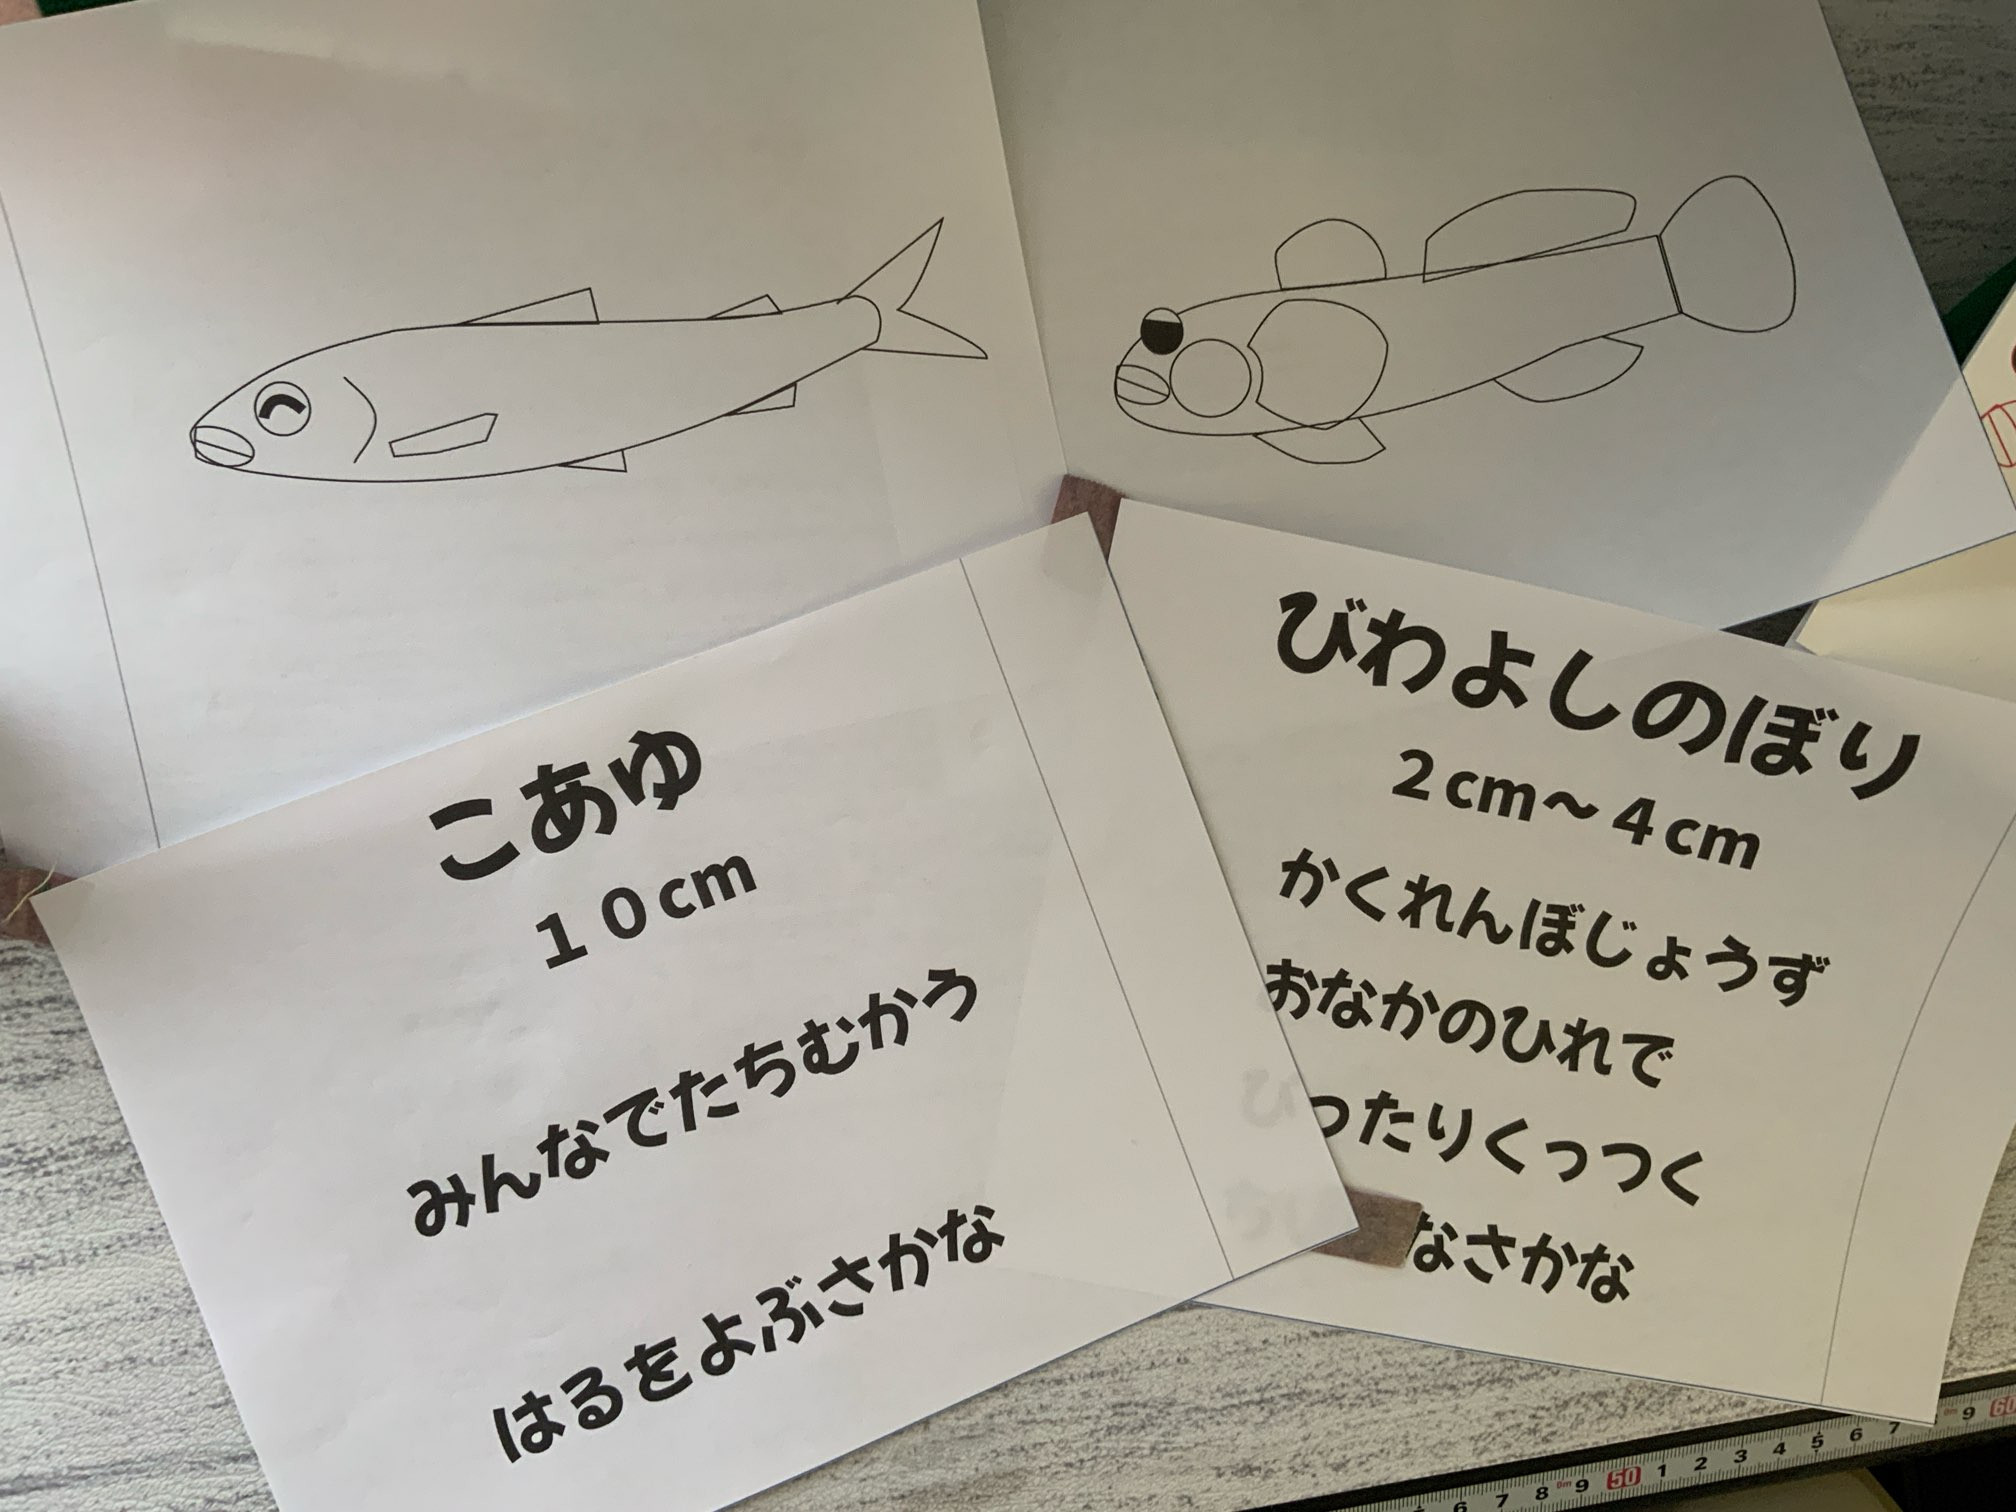 こあゆ
１０cm
みんなでたちむかう
はるをよぶさかな
びわよしのぼり
２cm～４cm
かくれんぼじょうず
おなかのひれで
ぴったりくっつく
なさかな
6 7 8 9 50 1 2 3 4 5 6 7 9 60